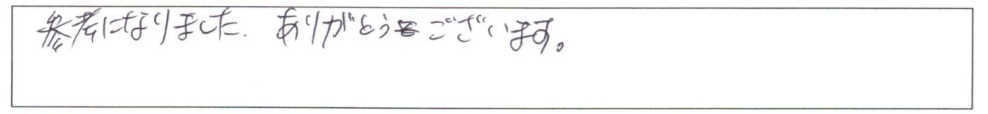 参考になりました. ありがとうございます。